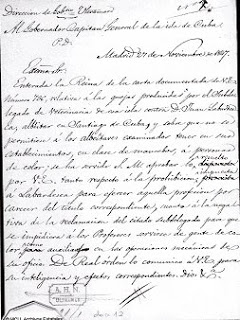 Dirección de
Al Gobernador Capitan General de la isla de Cuba
P.D.
Madrid 27 de Noviembre de 1847
Excmo. Sr.
Enterada la Reina de la carta documentada de V.E.
Número relativa a las quejas producidas por el Subde
legado de Veterinaria de esa isla contra D.
albéitar en Santiago de Cuba y sobre que no se
permitiese á los albéitares examinados tener en sus
establecimientos, en clase de mancebos, á personas
de color, se ha servido S.M. aprobar lo resuelto
por V.E. tanto respecto á la prohibición
á para ejercer aquella profesion por
carecer del título correspondiente, cuanto á la nega
tiva de la reclamacion del citado subdelegado para que
se impidiera á los Profesores servirse de gente de co
lor para auxiliar en las operaciones mecánicas de
su oficio. De Real órden lo comunico á V.E. para
su inteligencia y efectos correspondientes. Dios &ª
A.H.N.
ULTRAMAR